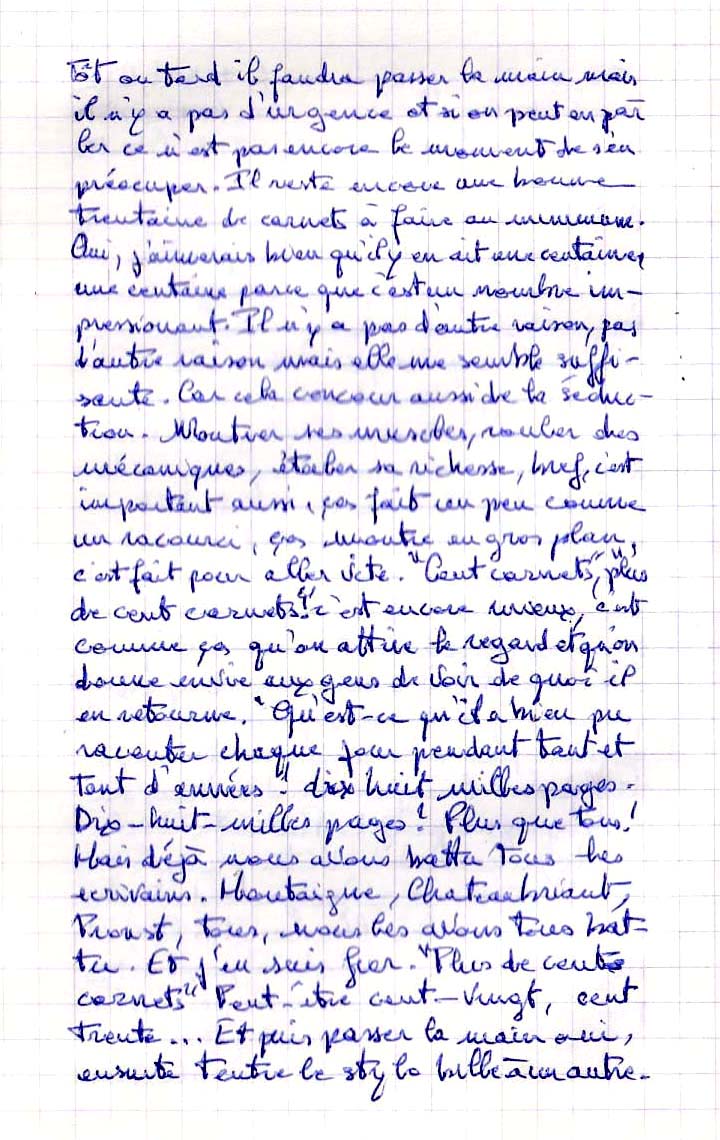 Tôt ou tard il faudra passer la main mais
il n'y a pas d'urgence et si on peut en par
ler ce n'est pas encore le moment de s'en
préoccuper. Il reste encore une bonne
trentaine de carnets à faire au minimum.
Oui, j'aimerais bien qu'il y en ait une centaine,
une centaine parce que c'est un nombre im-
pressionnant. Il n'y a pas d'autre raison, pas
d'autre raison mais elle me semble suffi-
sante. Car cela concour aussi de la séduc-
tion. Montrer ses muscles, rouler des
mécaniques, étaler sa richesse, bref, c'est
important aussi, ça fait un peu comme
un racourci, ça montre en gros plan,
c'est fait pour aller vite. "Cent carnets", "plus
de cent carnets!" c'est encore mieux, c'est
comme ça qu'on attire le regard et qu'on
donne envie aux gens de voir de quoi il
en retourne. "Qu'est-ce qu'il a bien pu
raconter chaque jour pendant tant et
tant d'années"! dix huit milles pages.
Dix-huit-milles pages! Plus que tous!
Mais déjà nous avons battu tous les
ecrivains. Montaigne, Chateaubriant,
Proust, tous, nous les avons tous bat-
tu. Et j'en suis fier. "Plus de cent
carnets" Peut-être cent-vingt, cent
trente... Et puis passer la main oui,
ensuite tendre le stylo bille à un autre.